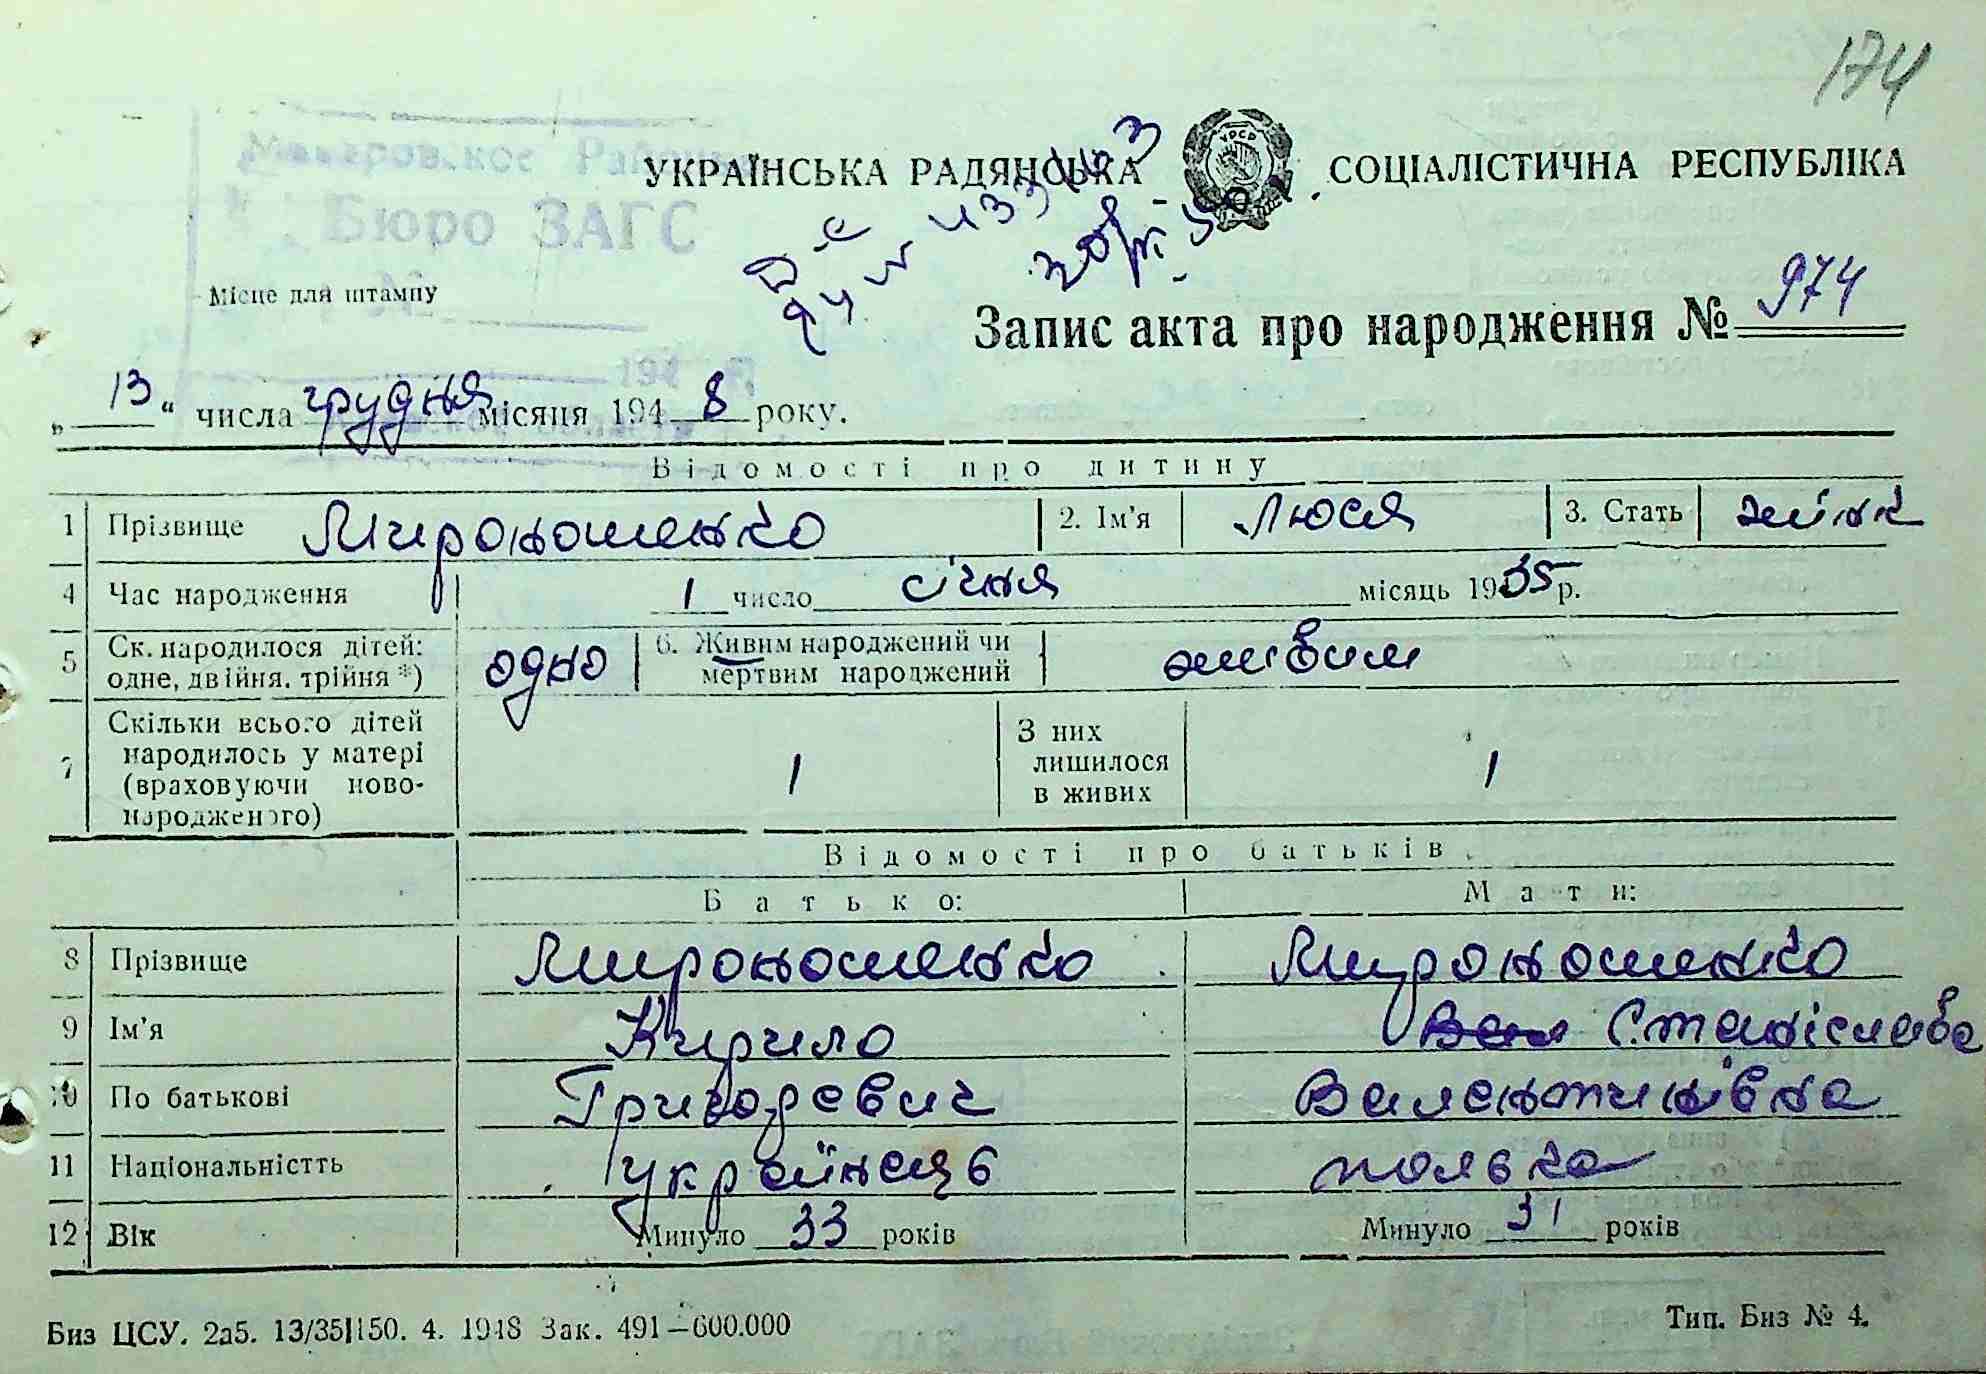 174
Макаровское Районное
УКРАЇНСЬКА РАДЯНСЬКА УРСР СОЦІАЛІСТИЧНА РЕСПУБЛІКА
Бюро ЗАГС
Місце для штампу
Запис акта про народження № 974
194 г.
„ 13 “ числа грудня місяця 194 8 року.
Відомості про дитину
1 Прізвище Мирономенко 2. Ім'я Люся 3. Стать жінк
4 Час народження 1 число січня місяць 1935 р.
5 Ск. народилося дітей: одне, двійня, трійня *) одно 6. Живим народжений чи мертвим народжений живим
7 Скільки всього дітей народилось у матері (враховуючи ново-народженого) 1 З них лишилося в живих 1
Відомості про батьків
Батько: Мати:
8 Прізвище Мирономенко Мирономенко
9 Ім'я Кирило Станіслава
10 По батькові Григоревич Валентинівна
11 Національністть українець полька
12 Вік Минуло 33 років Минуло 31 років
Биз ЦСУ. 2а5. 13/35|150. 4. 1948 Зак. 491—600.000 Тип. Биз № 4.